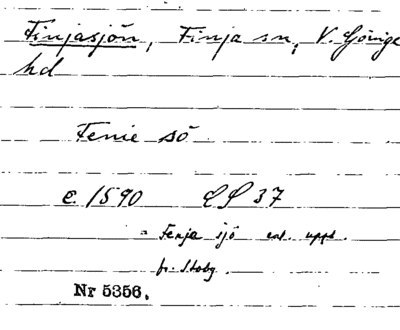 Finjasjön, Finja sn, V. Göinge
hd
Fenie sö
c. 1590 LS 37
= Fenja sjö enl. uppt.
fr. Stoby.
Nr 5356.